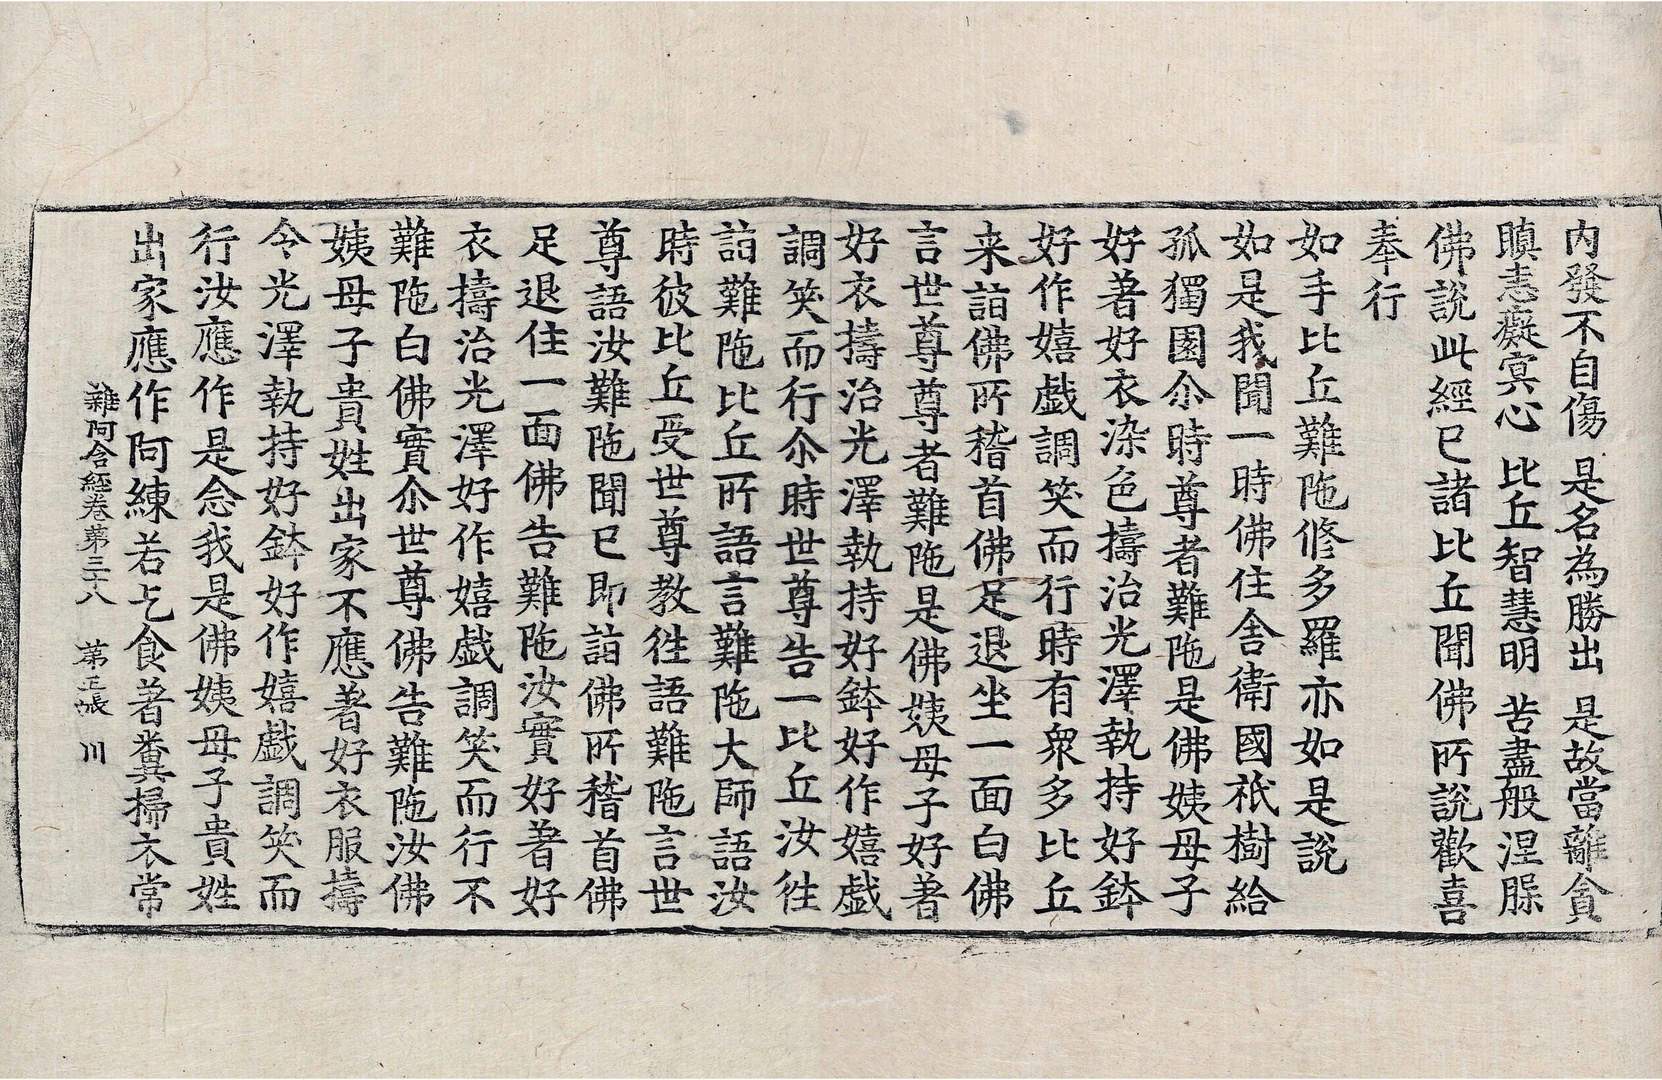 内發不自傷 是名為勝出 是故當離貪
瞋恚癡冥心 比丘智慧明 苦盡般涅脲
佛說此經已諸比丘聞佛所說歡喜
奉行
如手比丘難陁修多羅亦如是說
如是我聞一時佛住舍衛國祇樹給
孤獨園尒時尊者難陁是佛姨母子
好著好衣染色擣治光澤執持好鉢
好作嬉戲調笑而行時有衆多比丘
来詣佛所稽首佛足退坐一面白佛
言世尊尊者難陁是佛姨母子好著
好衣擣治光澤執持好鉢好作嬉戲
調笑而行尒時世尊告一比丘汝徃
詣難陁比丘所語言難陁大師語汝
時彼比丘受世尊教徃語難陁言世
尊語汝難陁聞已即詣佛所稽首佛
足退住一面佛告難陁汝實好著好
衣擣治光澤好作嬉戲調笑而行不
難陁白佛實尒世尊佛告難陁汝佛
姨母子貴姓出家不應著好衣服擣
令光澤執持好鉢好作嬉戲調笑而
行汝應作是念我是佛姨母子貴姓
出家應作阿練若乞食著糞掃衣常
雜阿含經卷第三十八 第五張 川